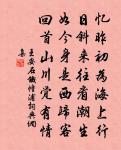 忆昨初为海上行
日斜来往看潮生
如今身是西归客
回首山川觉有情
王安石铁幢浦词典网
集